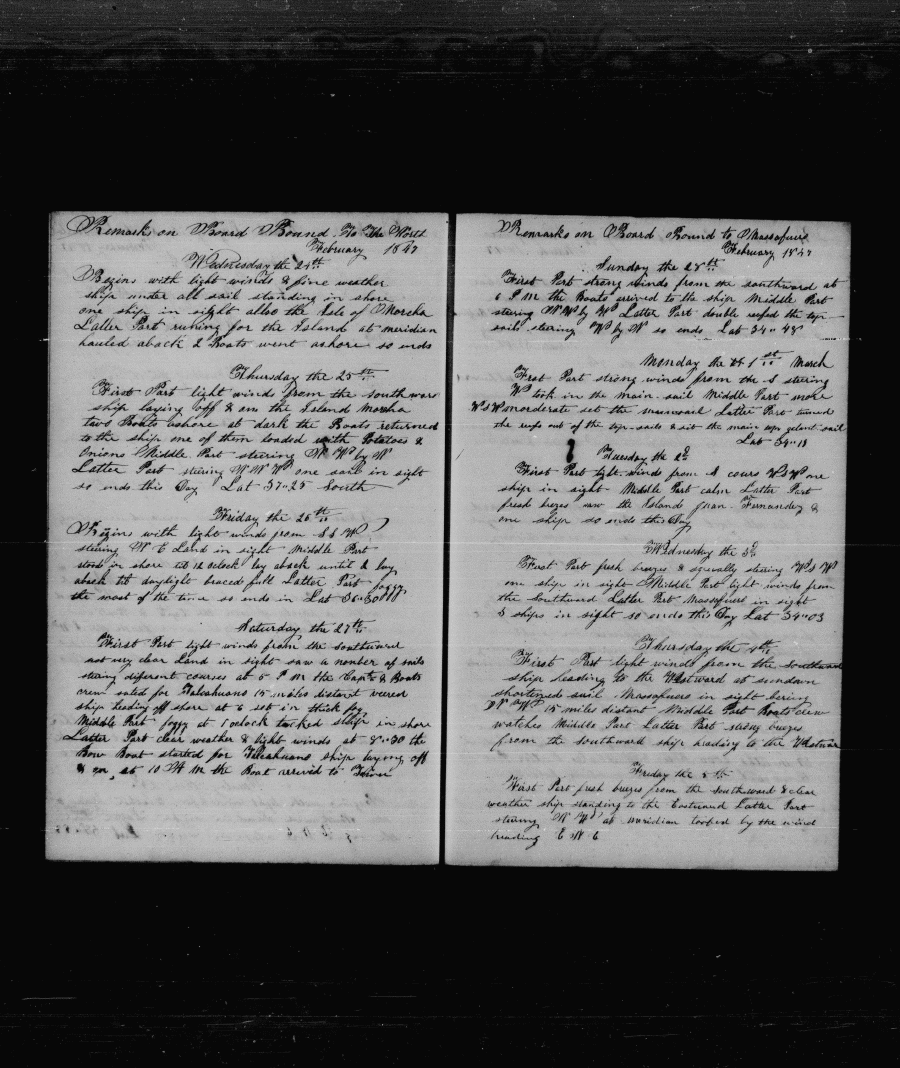 Remark on Board Bound To The North
February 1847
Wednesday the 24th
Begins with light winds & fine weather
ship under all sail standing in shore
one ship in sight allso the Isle of Morcha
Latter Part runing for the Island at meridian
hauled aback 2 Boats went ashore so ends
Thursday the 25th
First Part light winds from the southward
ship laying off & on the Island Morcha
two Boats ashore at dark the Boats returned
to the ship one of them loaded with Potatoes &
Onions Middle Part stering N W by W
Latter Part stering W N W one sail in sight
so ends this Day Lat 37"25 South
Friday the 26th
Begins with light winds from S S W
stering N E Land in sight Middle Part
stood in shore till 12 oclock lay aback until 4 lay
aback till daylight braced full Latter Part
the most of the time foggy so ends in Lat 36"30
Saturday the 27th
First Part light winds from the southward
not very clear Land in sight saw a number of sails
stering different courses at 5 P M the Capt & Boats
crew saled for Talcahuano 15 miles distant weered
ship heading off shore at 6 set in thick fog
Middle Part foggy at 1 oclock tacked ship in shore
Latter Part clear weather & light winds at 8"30 the
Bow Boat started for Talcahuano ship laying off
& on at 10 A M the Boat arrived to Town
Remarks on Board Bound to Massafuero
February 1847
Sunday the 28th
First Part strong winds from the southward at
6 P M the Boats arived to the ship Middle Part
stering N W by W Latter Part double reefed the top
sails stering W by N so ends Lat 34" 48
Monday the 1st March
First Part strong winds from the S stering
W took in the main sail Middle Part more
W S W morderate set the mainsail Latter Part turned
the reefs out of the top-sails & set the main top galant sail
Lat 34"18
Tuesday the 2d
First Part light winds from S cours W S W one
ship in sight Middle Part calm Latter Part
fresh brezes saw the Island Juan Fernandez &
one ship so ends this Day
Wednesday the 3d
First Part fresh breezes & squally stering W S W
one ship in sight Middle Part light winds from
the Southward Latter Part Massafuero in sight
5 ships in sight so ends this Day Lat 34"03
Thursday the 4th
First Part light winds from the southward
ship heading to the Westward at sundown
shortened sail Massafuero in sight bering
15 miles distant Middle Part Boats Crew
watches Middle Part Latter Part strong breezes
from the southward ship heading to the Westward
Friday the 5th
First Part fresh breezes from the southward & clear
weather ship standing to the Eastward Latter Part
stering W at meridian by the wind
heading E N E